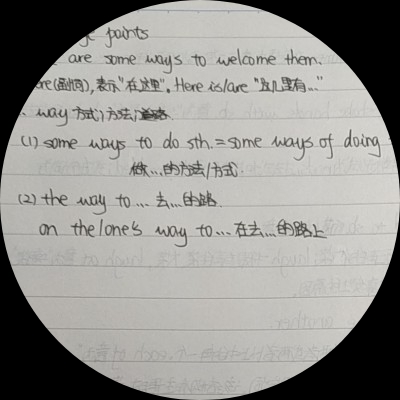 ge points
are some ways to welcome them.
ere(副词), 表示"在这里". Here is/are "这儿里有..."
. way 方式; 方法;道路
(1) some ways to do sth. = some ways of doing
做...的方法/方式.
(2) the way to ... 去...的路.
on the/one's way to ... 在去...的路上